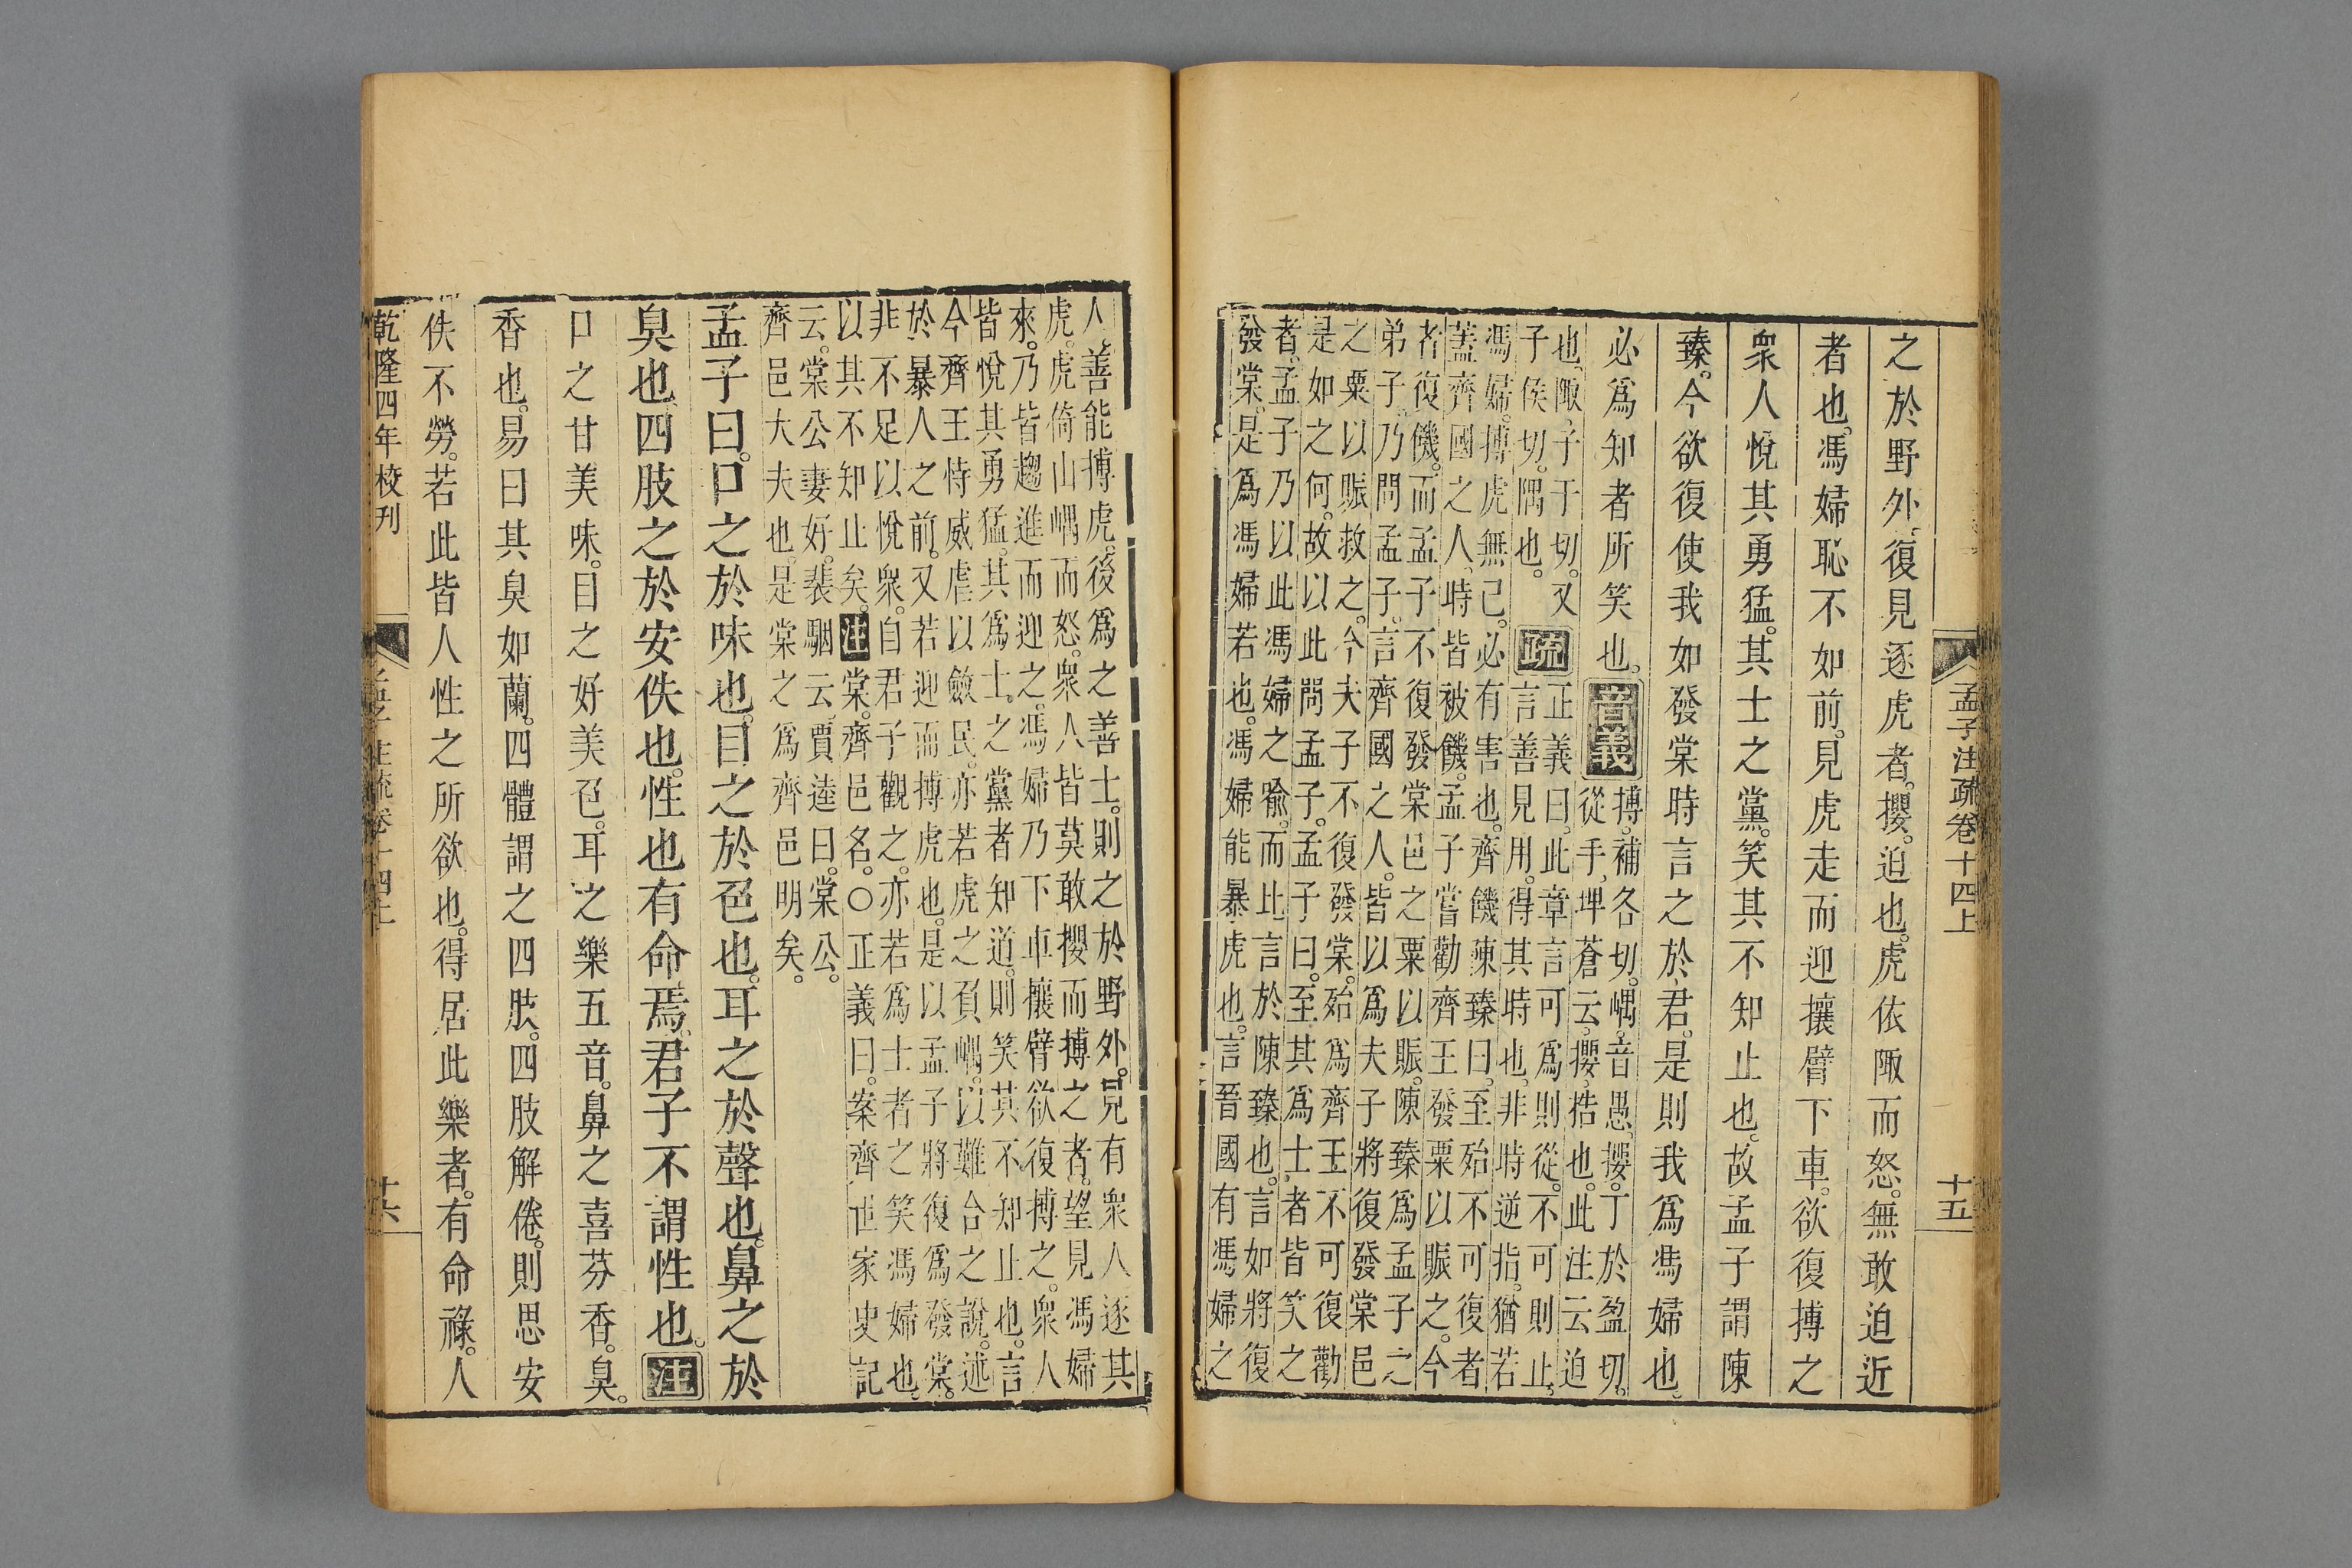 孟子注疏卷十四上
十五
之於野外復見逐虎者。攖。迫也。虎依陬而怒。無敢迫近
者也。馮婦恥不如前。見虎走而迎攘臂下車。欲復搏之
衆人悅其勇猛。其士之黨。笑其不知止也。故孟子謂陳
臻。今欲復使我如發棠時言之於君。是則我爲馮婦也。
必爲知者所笑也。音義
搏。補各切。嵎。音愚。攖。丁於盈切。
從手。埤蒼云。攖。梏也。此注云迫
也。陬。子于切。又
子侯切。隅也。
疏
正義曰。此章言可爲則從。不可則止。
言善見用。得其時也。非時逆指。猶若
馮婦。搏虎無已。必有害也。齊饑陳臻曰。至殆不可復者
蓋齊國之人。時皆被饑。孟子嘗勸齊王發粟以賑之。今
者復饑。而孟子不復發棠邑之粟以賑。陳臻爲孟子之
弟子。乃問孟子。言齊國之人。皆以爲夫子將復發棠邑
之粟以賑救之。今夫子不復發棠。殆爲齊王不可復勸
是如之何。故以此問孟子。孟子曰。至其爲士者皆笑之
者。孟子乃以此馮婦之喻。而比言於陳臻也。言如將復
發棠。是爲馮婦若也。馮婦能暴虎也。言晉國有馮婦之
人。善能搏虎。後爲之善士。則之於野外。見有衆人逐其
虎。虎倚山嵎而怒。衆人皆莫敢攖而搏之者。望見馮婦
來。乃皆趨進而迎之。馮婦乃下車攘臂欲復搏之。衆人
皆悅其勇猛。其爲士。之黨者知道。則笑其不知止也。言
今齊王恃威虐以斂民。亦若虎之負嵎。以難合之說。述
於暴人之前。又若迎而搏虎也。是以孟子將復爲發棠。
非不足以悅衆。自君子觀之。亦若爲士者之笑馮婦也。
以其不知止矣。注棠。齊邑名。○正義曰。案齊世家史記
云。棠公妻好。裴駰云。賈逵曰。棠公。
齊邑大夫也。是棠之爲齊邑明矣。
孟子曰。口之於味也。目之於色也。耳之於聲也。鼻之於
臭也。四肢之於安佚也。性也有命焉。君子不謂性也。注
口之甘美味。目之好美色。耳之樂五音。鼻之喜芬香。臭。
香也。易曰其臭如蘭。四體謂之四肢。四肢解倦。則思安
佚不勞。若此皆人性之所欲也。得居此樂者。有命祿。人
乾隆四年校刊
孟子注疏卷十四上
十六